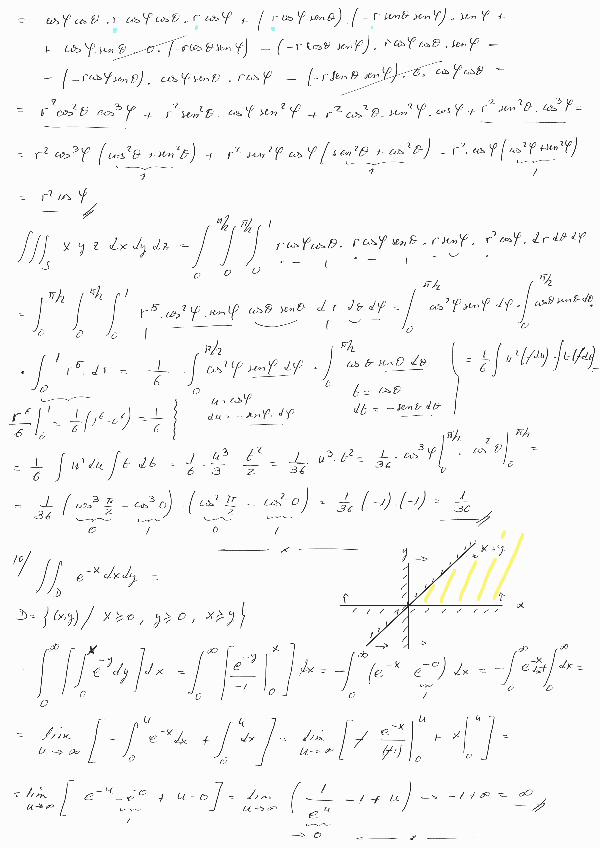 = cosφ cosθ · r cosφ cosθ · r cosφ + (r cosφ senθ) · (-r senθ senφ) · senφ +
+ cosφ · senθ · 0 · (-r cosθ senφ) - (-r cosθ senφ) · r cosφ cosθ · senφ -
- (-r cosφ senθ) · cosφ senθ · r cosφ - (-r senθ senφ) · 0 · cosφ cosθ =
= r² cos²θ cos³φ + r² sen²θ · cosφ sen²φ + r² cos²θ · sen²φ · cosφ + r² sen²θ · cos³φ =
= r² cos³φ (cos²θ + sen²θ) + r² sen²φ cosφ (sen²θ + cos²θ) = r² · cosφ (cos²φ + sen²φ)
1 1 1
= r² cosφ
∭_S x y z dx dy dz = ∫_0^{π/2} ∫_0^{π/2} ∫_0^1 r cosφ cosθ · r cosφ senθ · r senφ · r² cosφ · dr dθ dφ
= ∫_0^{π/2} ∫_0^{π/2} ∫_0^1 r⁵ · cos³φ · senφ cosθ senθ dr dθ dφ = ∫_0^{π/2} cos³φ senφ dφ · ∫_0^{π/2} cosθ senθ dθ ·
· ∫_0^1 r⁵ · dr = 1/6 · ∫_0^{π/2} cos²φ senφ dφ · ∫_0^{π/2} cosθ senθ dθ = 1/6 ∫ u² (-du) · ∫ t (-dt)
r⁶/6 |_0^1 = 1/6 (1⁶ - 0⁶) = 1/6 u = cosφ t = cosθ
du = -senφ dφ dt = -senθ dθ
= 1/6 ∫ u² du ∫ t dt = 1/6 · u³/3 · t²/2 = 1/36 · u³ · t² = 1/36 · cos³φ |_0^{π/2} · cos²θ |_0^{π/2} =
= 1/36 (cos³ π/2 - cos³ 0) (cos² π/2 - cos² 0) = 1/36 (-1) (-1) = 1/36
0 1 0 1
x
10/ ∬_D e^{-x} dx dy =
y x=y
D = {(x,y) / x ≥ 0, y ≥ 0, x ≥ y}
x
∫_0^∞ [∫_0^x e^{-y} dy] dx = ∫_0^∞ [e^{-y}/-1 |_0^x] dx = -∫_0^∞ (e^{-x} - e^{-0}) dx = -∫_0^∞ e^{-x} dx + ∫_0^∞ dx =
1
= lim_{u→∞} [-∫_0^u e^{-x} dx + ∫_0^u dx] = lim_{u→∞} [- e^{-x}/(-1) |_0^u + x |_0^u] =
= lim_{u→∞} [e^{-u} - e^{-0} + u - 0] = lim_{u→∞} (1/e^u - 1 + u) → -1 + ∞ = ∞
1 → 0
x